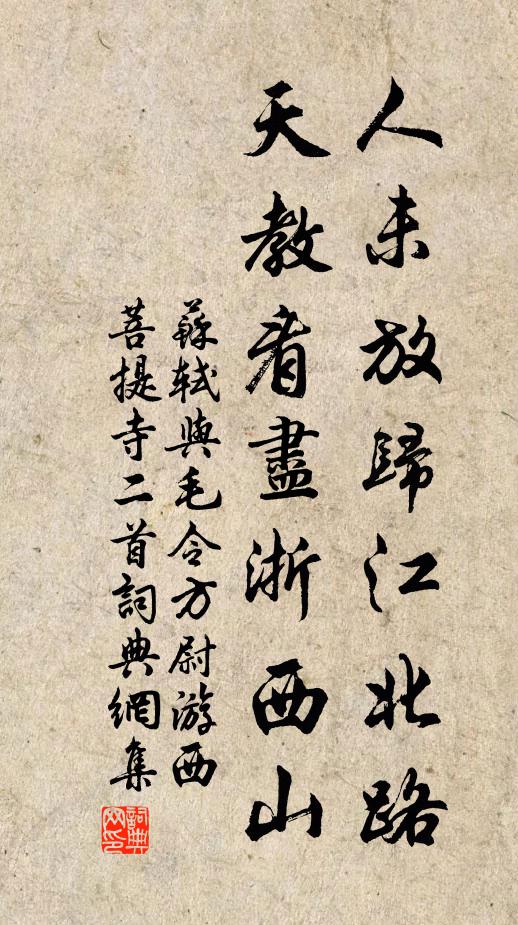 人未放歸江北路
天教看盡浙西山
蘇軾與毛令方尉游西
菩提寺二首詞典網集
詞典網印